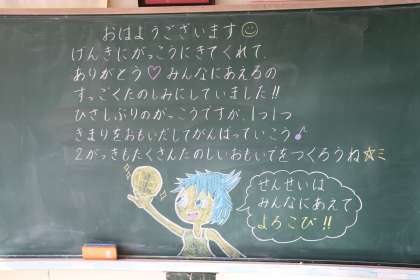 おはようございます
げんきにがっこうにきてくれて、
ありがとう♡みんなにあえるの
すっごくたのしみにしていました!!
ひさしぶりのがっこうですが、1つ1つ
きまりをおもいだしてがんばっていこう♪
2がっきもたくさんたのしいおもいでをつくろうね☆ミ
せんせいは
みんなにあえて
よろこび!!